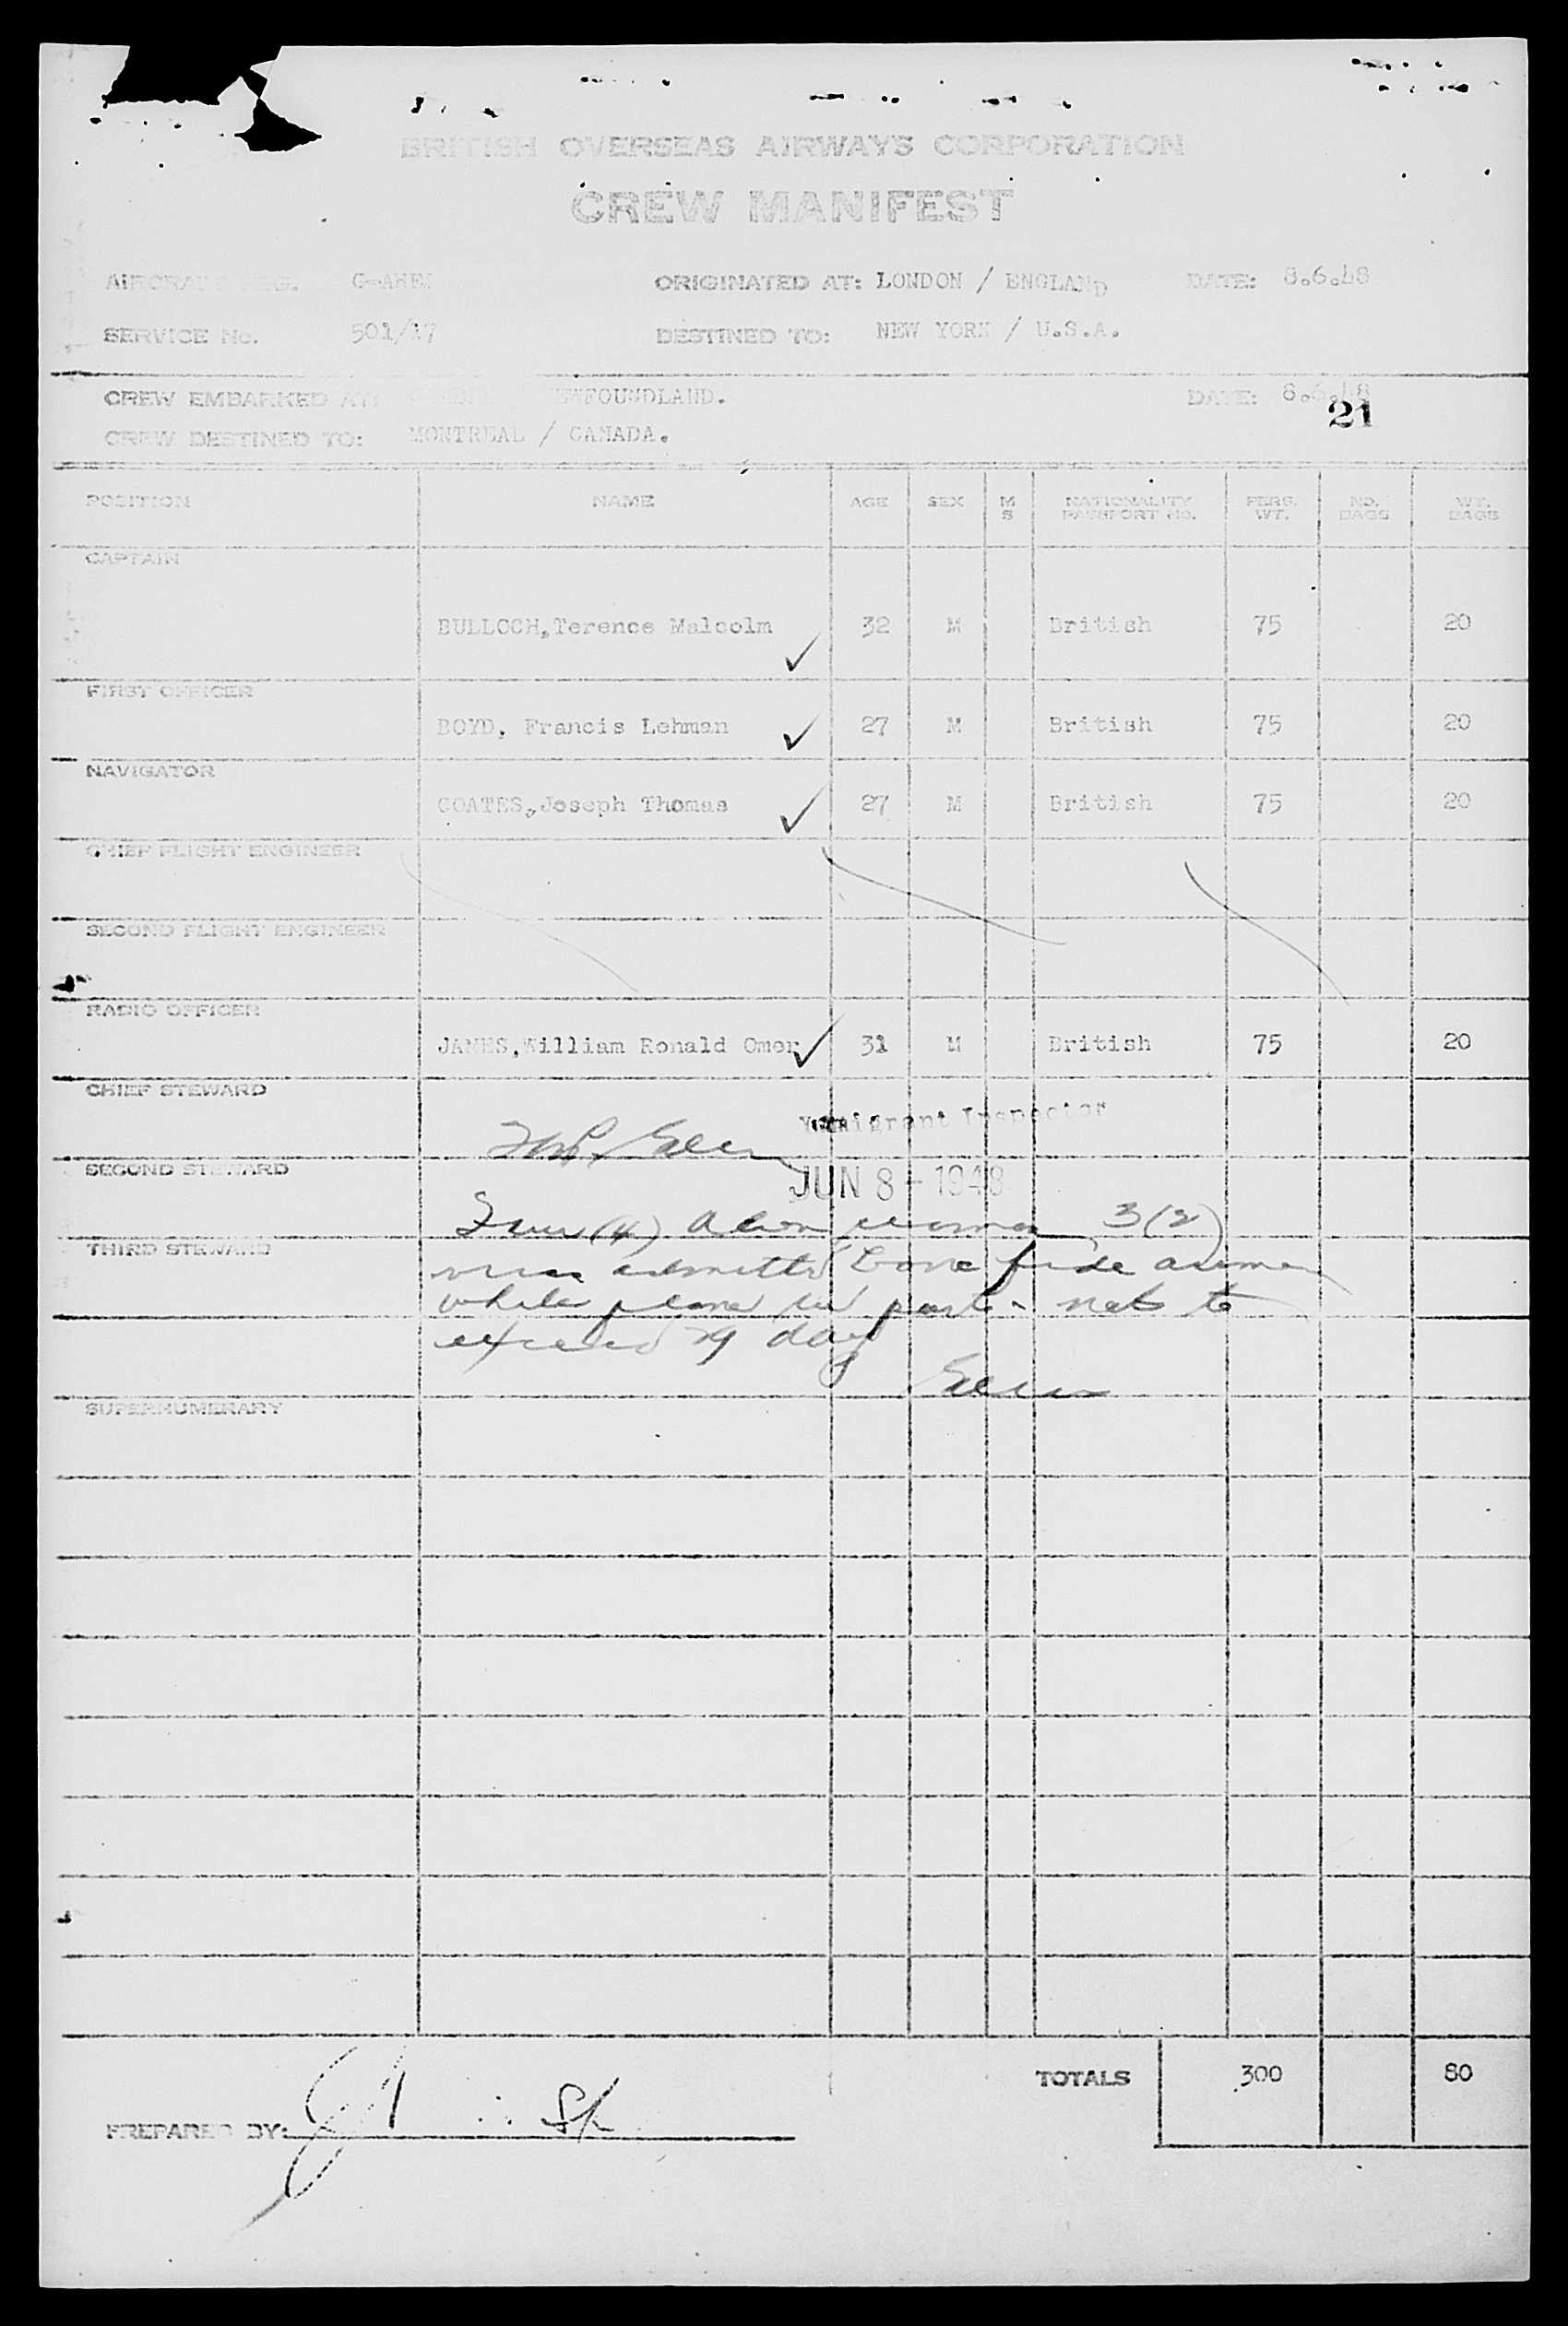 BRITISH OVERSEAS AIRWAYS CORPORATION
CREW MANIFEST
ORIGINATED AT: LONDON / ENGLAND DATE: 8.6.48
SERVICE No. 501/17 DESTINED TO: NEW YORK / U.S.A.
CREW EMBARKED AT: DATE: 8.6.48
21
CREW DESTINED TO: MONTREAL / CANADA.
POSITION NAME AGE SEX M S NATIONALITY PASSPORT No. PERS. WT. NO. BAGS WT. BAGS
CAPTAIN
BULLOCH,Terence Malcolm 32 M British 75 20
FIRST OFFICER
BOYD, Francis Lehman 27 M British 75 20
NAVIGATOR
COATES,Joseph Thomas 27 M British 75 20
CHIEF FLIGHT ENGINEER
SECOND FLIGHT ENGINEER
RADIO OFFICER
JAMES,William Ronald Omer 31 M British 75 20
CHIEF STEWARD
Immigrant Inspector
SECOND STEWARD
JUN 8 - 1948
(4) 3(2)
THIRD STEWARD
admitted bona fide
while plane in port - not to
exceed 29 day
SUPERNUMERARY
TOTALS 300 80
PREPARED BY: